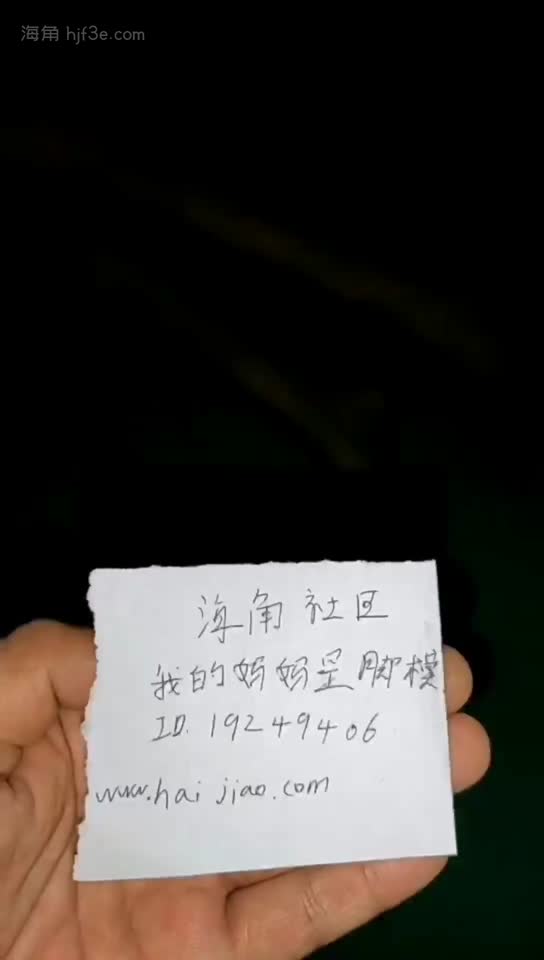 海角 hjf3e.com
海角社区
我的妈妈是脚模
ID. 19249406
www.haijiao.com